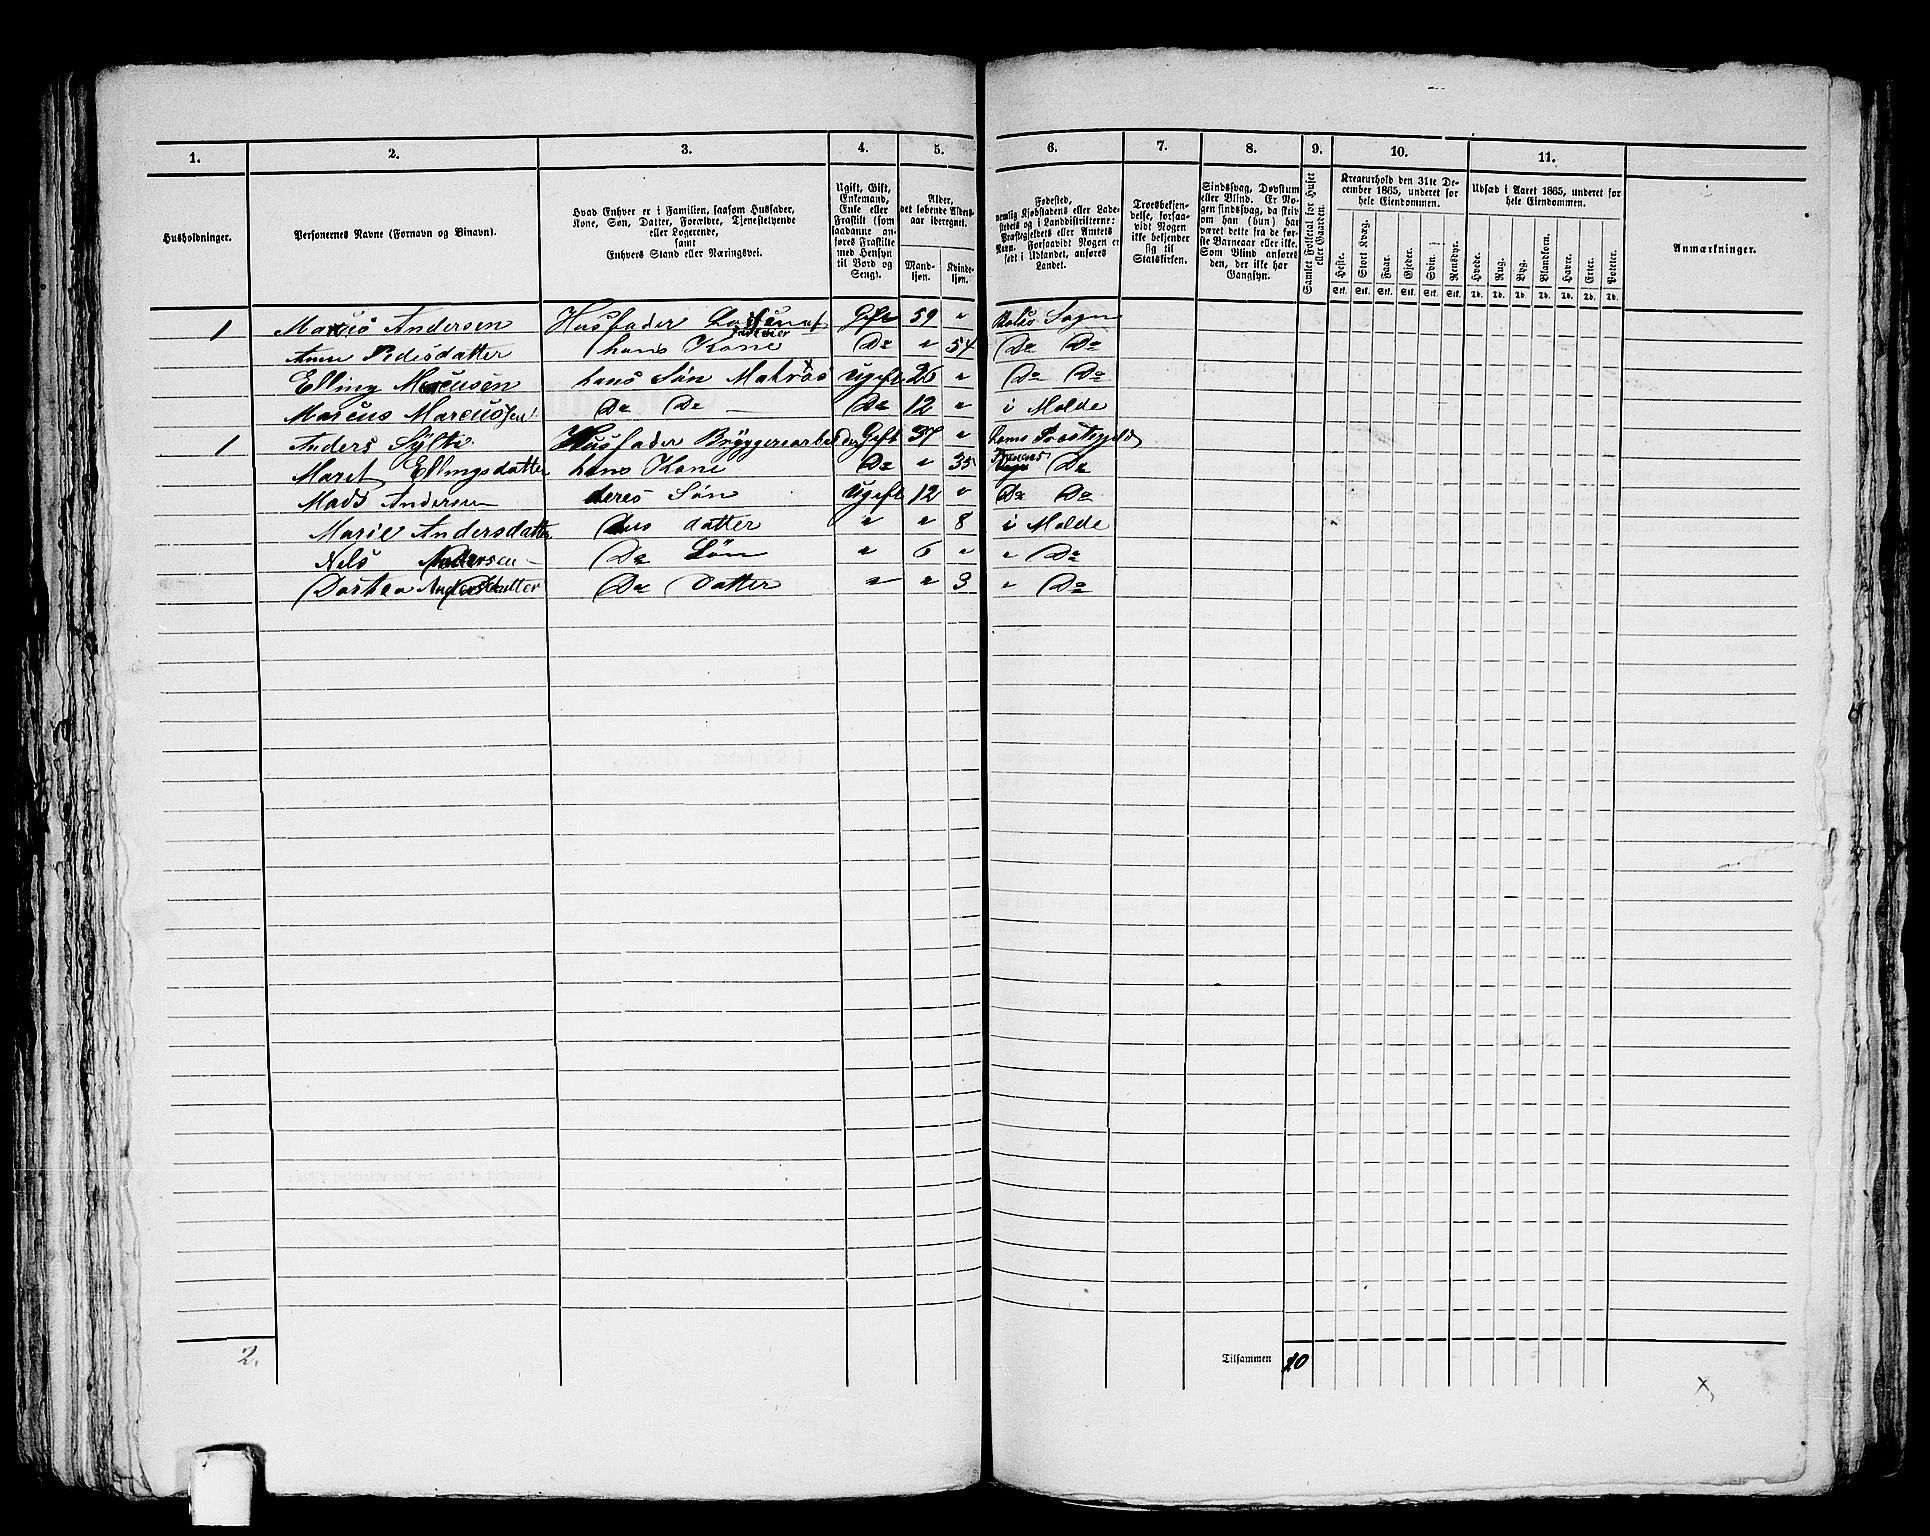 1. 2. 3. 4. 5. 6. 7. 8. 9. 10. 11.
Husholdninger.
Personernes Navne (Fornavn og Binavn).
Hvad Enhver er i Familien, saasom Husfader,
Kone, Søn, Datter, Forældre, Tjenestetyende
eller Logerende,
samt
Enhvers Stand eller Næringsvei.
Ugift, Gift,
Enkemand,
Enke eller
Fraskilt (som
saadanne an-
føres Fraskilte
med Hensyn
til Bord og
Seng).
Alder,
det løbende Alders-
aar iberegnet.
Mand-
kjøn.
Kvinde-
kjøn.
Fødested,
nemlig Kjøbstadens eller Lade-
stedets og i Landdistrikterne:
Præstegjeldets eller Amtets
Navn. Forsaavidt Nogen er
født i Udlandet, anføres
Landet.
Troesbekjen-
delse, forsaa-
vidt Nogen
ikke bekjender
sig til
Statskirken.
Sindssvag, Døvstum
eller Blind. Er No-
gen sindssvag, da skriv
om han (hun) har
været dette fra de før-
ste Barneaar eller ikke.
Som Blind anføres
den, der ikke har
Gangsyn.
Samlet Folketal for Huset
eller Gaarden.
Kreaturhold den 31te De-
cember 1865, underet for
hele Eiendommen.
Heste. Stort Kvæg. Faar. Gjeder. Svin. Rensdyr.
Stk. Stk. Stk. Stk. Stk. Stk.
Udsæd i Aaret 1865, underet for
hele Eiendommen.
Hvede. Rug. Byg. Blandkorn. Havre. Erter. Poteter.
Td. Td. Td. Td. Td. Td. Td.
Anmærkninger.
1 Marcus Andersen Husfader Gift 59 " Bolsø Sogn
Anne Pedersdatter hans Kone Do " 54 Do Do
Elling Marcusen hans Søn Matros Ugift 25 " Do Do
Marcus Marcussen Do Do Do 12 " i Molde
1 Anders Sylte Husfader Bryggerearbeider Gift 37 "
Maret Ellingsdatter hans Kone Do " 35 Do
Mads Andersen deres Søn Ugift 12 " Do Do
Marie Andersdatter datter " " 8 i Molde
Nels Andersen Do Søn " 6 " " Do
Dorthea Andersdatter Do Datter " " 3 " Do
2.
Tilsammen 10